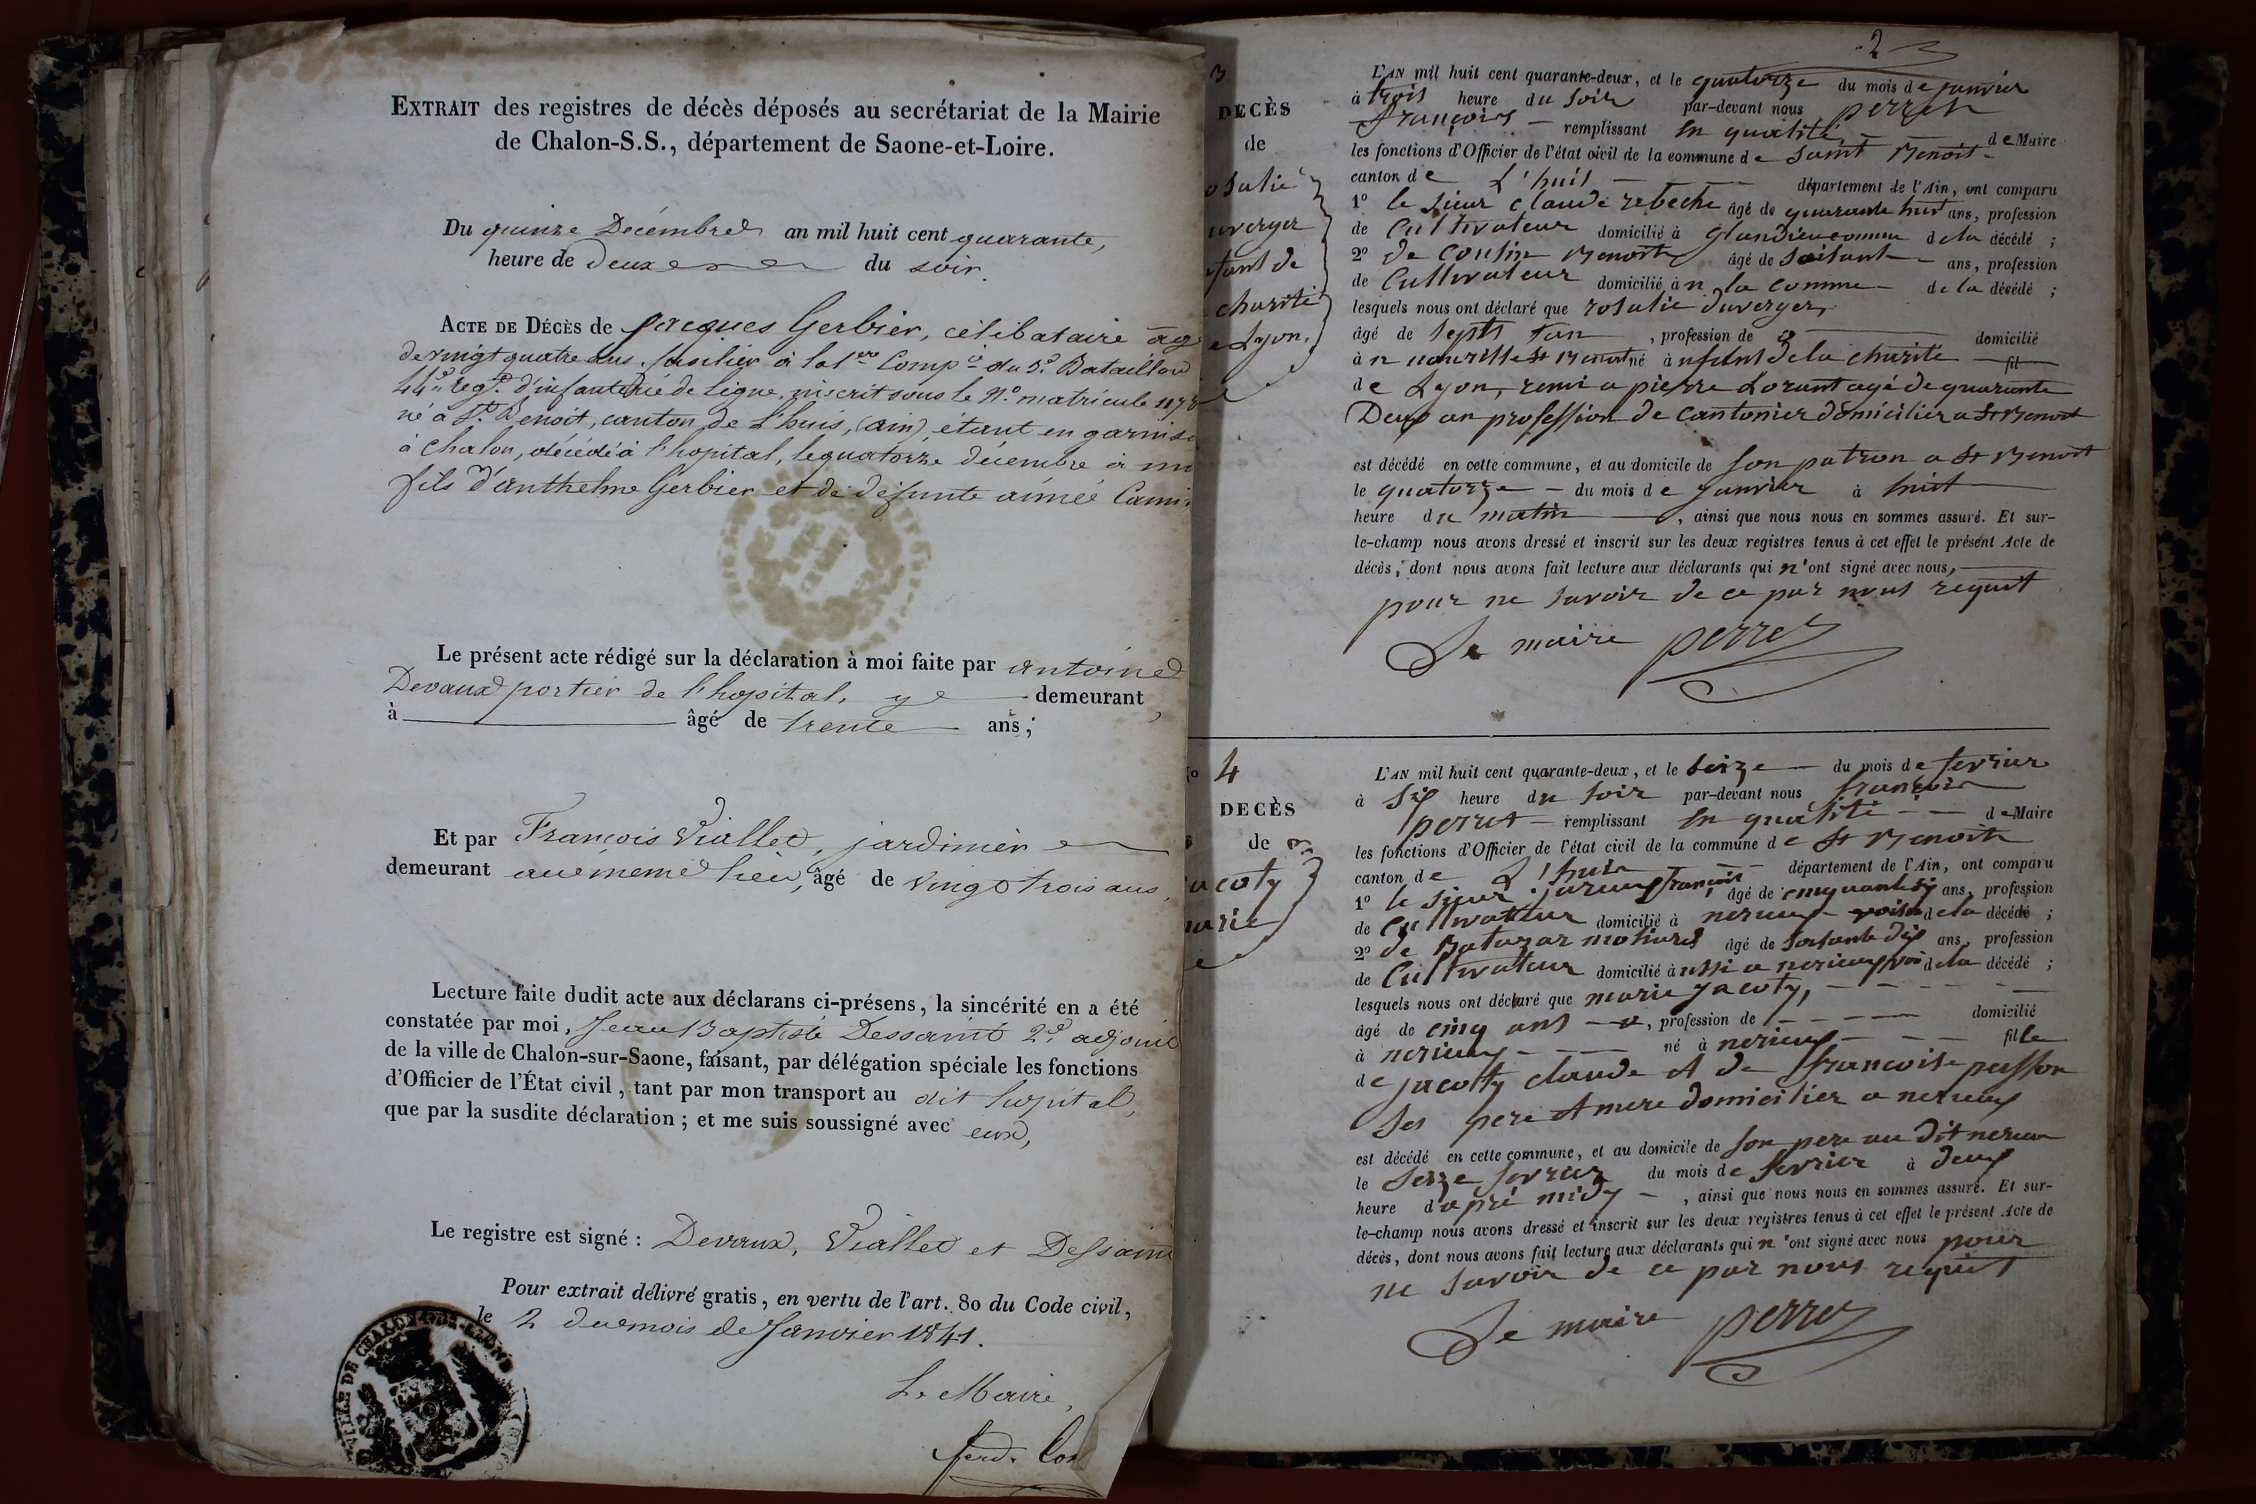 EXTRAIT des registres de décès déposés au secrétariat de la Mairie
de Chalon-S.S., département de Saone-et-Loire.
Du quinze Décembre an mil huit cent quarante,
heure de deux du soir.
ACTE DE DÉCÈS de Jacques Gerbier, célibataire âg
de vingt quatre ans, fusilier à la 1ere Compie du 3e Bataillon
44e regt d'infanterie de ligne, inscrit sous le N° matricule
né à St Benoit, canton de Lhuis, (ain), étant en garniso
à Chalon, décédé à l'hopital, le quatorze décembre à mi
fils d'anthelme Gerbier et de défunte aimée Cami
Le présent acte rédigé sur la déclaration à moi faite par antoine
Devaux portier de l'hopital, y demeurant
à âgé de trente ans ;
Et par François Viallet, jardinier
demeurant au meme lieu, âgé de vingt trois ans,
Lecture faite dudit acte aux déclarans ci-présens, la sincérité en a été
constatée par moi, Jean Baptiste Dessaint 2d adjoint
de la ville de Chalon-sur-Saone, faisant, par délégation spéciale les fonctions
d'Officier de l'État civil, tant par mon transport au dit hopital,
que par la susdite déclaration ; et me suis soussigné avec eux,
Le registre est signé : Devaux, Viallet et Dessaint
Pour extrait délivré gratis, en vertu de l'art. 80 du Code civil,
le 2 du mois de Janvier 1841.
Le Maire,
ferd.
VILLE DE CHALON
2
3
DECÈS
de
osalie
uverger
fant de
charité
e Lyon.
L'AN mil huit cent quarante-deux, et le quatorze du mois de janvier
à trois heure du soir par-devant nous perret
François remplissant en qualité de Maire
les fonctions d'Officier de l'état civil de la commune de saint Benoit
canton de L'huis département de l'Ain, ont comparu
1° le sieur claude rebeche âgé de quarante huit ans, profession
de Cultivateur domicilié à glandieu comun de la décédé ;
2° de coulin Benoit âgé de soisant ans, profession
de Cultivateur domicilié àn la comme de la décédé ;
lesquels nous ont déclaré que rosalie duverger,
âgé de septs tan, profession de domicilié
à n nourisse St Benoit né à nfant de la charité fil
de Lyon, remi a pierre Lorant agé de quarante
Deux an profession de cantonier domicilier a St Benoit
est décédé en cette commune, et au domicile de son patron a St Benoit
le quatorze du mois de janvier à huit
heure du matin, ainsi que nous nous en sommes assuré. Et sur-
le-champ nous avons dressé et inscrit sur les deux registres tenus à cet effet le présent Acte de
décès, dont nous avons fait lecture aux déclarants qui n'ont signé avec nous,
pour ne savoir de ce par nous requit
Le maire perret
No 4
DECÈS
de
acoty
marie
L'AN mil huit cent quarante-deux, et le seize du mois de fevrier
à six heure du soir par-devant nous françois
perret remplissant en qualité de Maire
les fonctions d'Officier de l'état civil de la commune de St Benoit
canton de L'huis département de l'Ain, ont comparu
1° le sieur françois âgé de cinquante six ans, profession
de Cultivateur domicilié à nerieux voisin de la décédé ;
2° de Batazar âgé de soisante dix ans, profession
de Cultivateur domicilié à ussi a nerieux voi de la décédé ;
lesquels nous ont déclaré que marie jacoty,
âgé de cinq ans, profession de domicilié
à nerieux né à nerieux fille
de jacoty claude et de francoise
ses pere et mere domicilier a nerieux
est décédé en cette commune, et au domicile de son pere au dit nerieu
le seize fevrier du mois de fevrier à deux
heure dapré midy, ainsi que nous nous en sommes assuré. Et sur-
le-champ nous avons dressé et inscrit sur les deux registres tenus à cet effet le présent Acte de
décès, dont nous avons fait lecture aux déclarants qui n'ont signé avec nous pour
ne savoir de ce par nous requit
Le maire perret